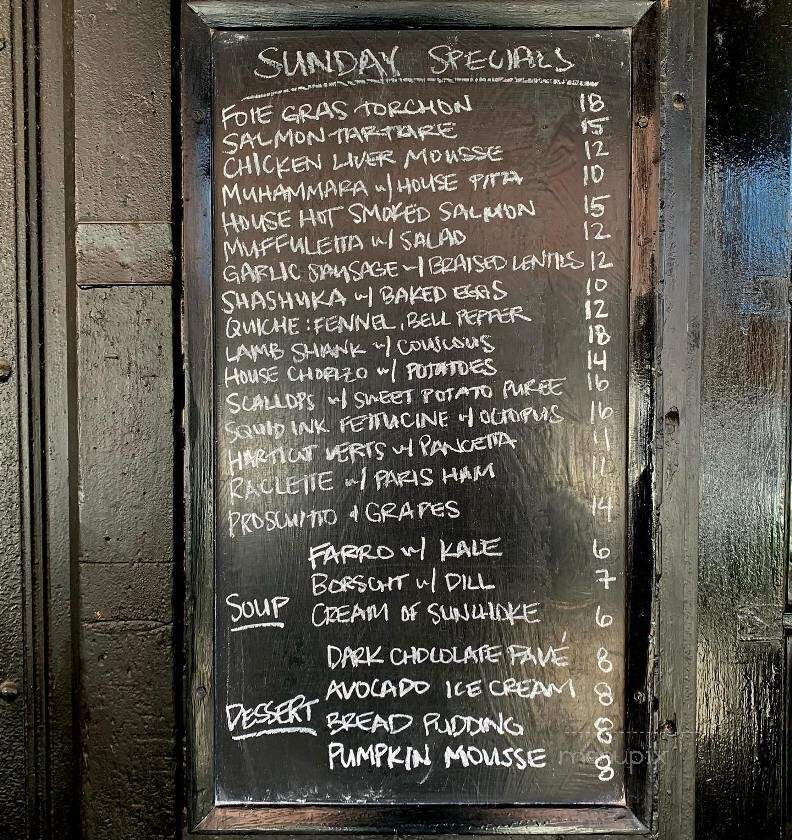 SUNDAY SPECIALS
FOIE GRAS TORCHON 18
SALMON TARTARE 15
CHICKEN LIVER MOUSSE 12
MUHAMMARA w/ HOUSE PITA 10
HOUSE HOT SMOKED SALMON 15
MUFFULETTA w/ SALAD 12
GARLIC SAUSAGE w/ BRAISED LENTILS 12
SHASHUKA w/ BAKED EGGS 10
QUICHE: FENNEL, BELL PEPPER 12
LAMB SHANK w/ COUSCOUS 18
HOUSE CHORIZO w/ POTATOES 14
SCALLOPS w/ SWEET POTATO PUREE 16
SQUID INK FETTUCINE w/ OCTOPUS 16
HARICOT VERTS w/ PANCETTA 11
RACLETTE w/ PARIS HAM
PROSCUITTO & GRAPES 14
FARRO w/ KALE 6
BORSCHT w/ DILL 7
SOUP CREAM OF SUNCHOKE 6
DARK CHOCOLATE PAVÉ 8
AVOCADO ICE CREAM 8
DESSERT BREAD PUDDING 8
PUMPKIN MOUSSE 8
menupix